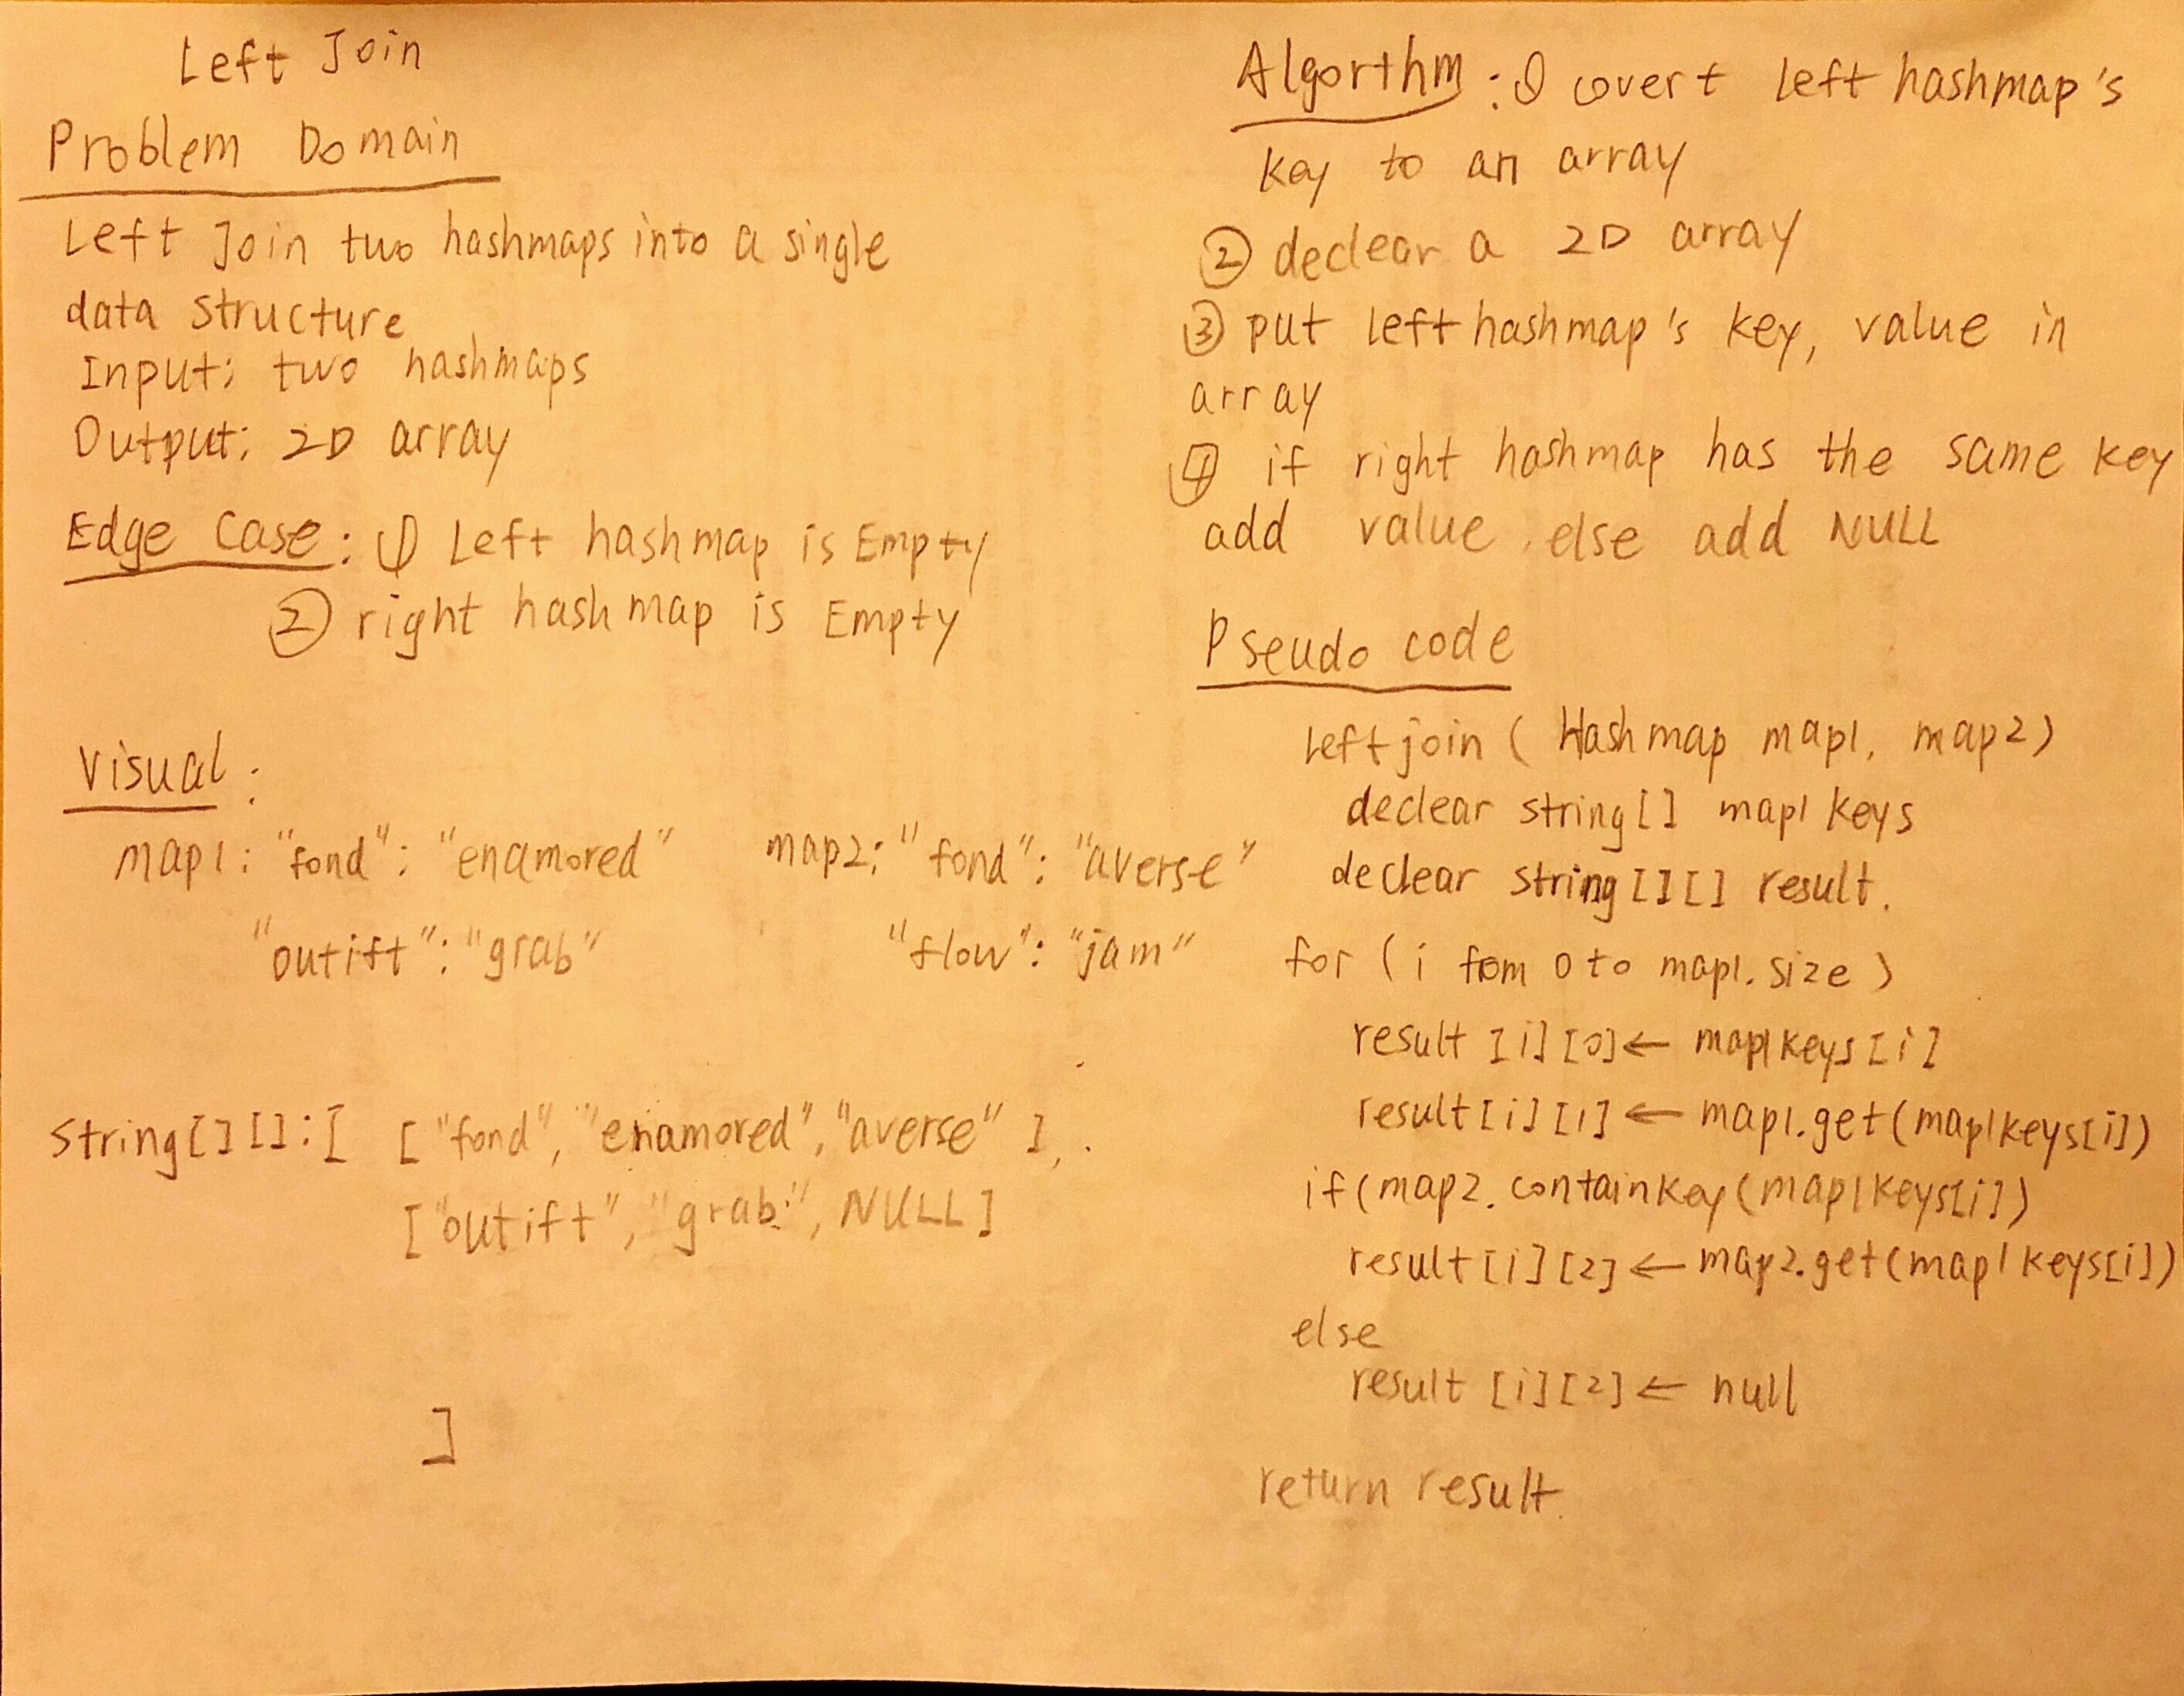 Left Join
Problem Domain
Left Join two hashmaps into a single
data structure
Input: two hashmaps
Output: 2D array
Edge Case: ① Left hashmap is Empty
② right hashmap is Empty
Visual:
map1: "fond": "enamored" map2: "fond": "averse"
"outift": "grab" "flow": "jam"
String[][]: [ ["fond", "enamored", "averse"],
["outift", "grab", NULL]
]
Algorthm: ① covert left hashmap's
key to an array
② declear a 2D array
③ put left hashmap's key, value in
array
④ if right hashmap has the same key
add value, else add NULL
Pseudo code
leftjoin ( Hashmap map1, map2)
declear string[] map1keys
declear string[][] result.
for (i fom 0 to map1.size)
result [i][0] ← map1keys[i]
result[i][1] ← map1.get(map1keys[i])
if(map2.containkey(map1keys[i])
result[i][2] ← map2.get(map1keys[i])
else
result [i][2] ← null
return result.